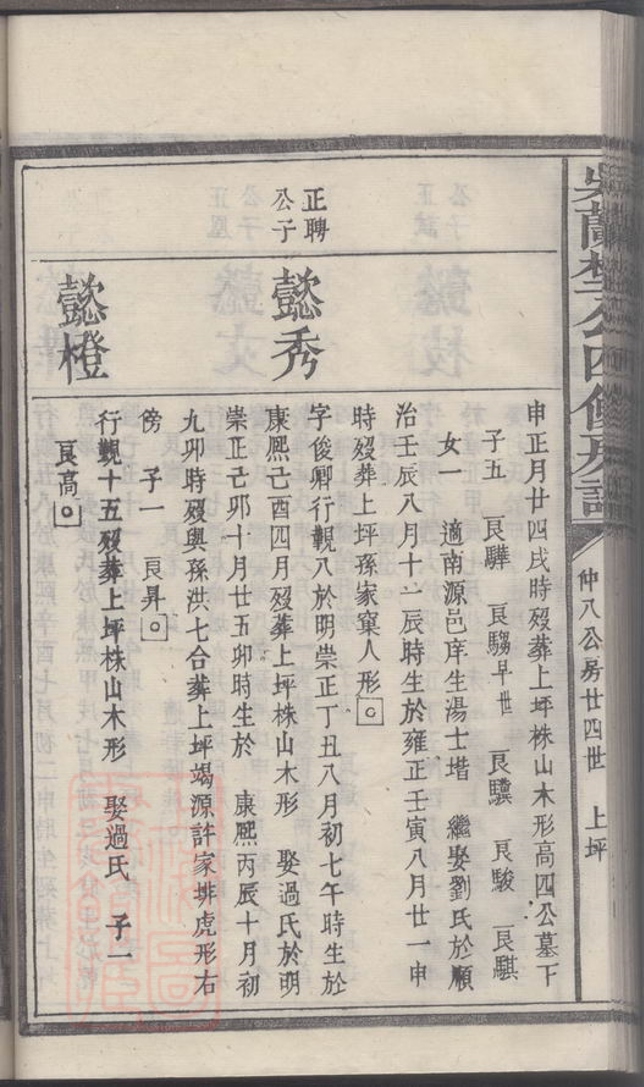 吳蘭埜公四修房譜
仲八公房廿四世
上坪
申正月廿四戌時歿葬上坪株山木形高四公墓下
子五 良驊 良騶早世 良驥 良駿 良騏
女一 適南源邑庠生湯士堦 繼娶劉氏於順
治壬辰八月十一辰時生於雍正壬寅八月廿一申
時歿葬上坪孫家窠人形
正聘
公子
懿秀
字俊卿行觀八於明崇正丁丑八月初七午時生於
康熙己酉四月歿葬上坪株山木形 娶過氏於明
崇正己卯十月廿五卯時生於 康熙丙辰十月初
九卯時歿與孫洪七合葬上坪竭源許家排虎形右
傍 子一 良昇
懿橙
行觀十五歿葬上坪株山木形 娶過氏 子一
良高